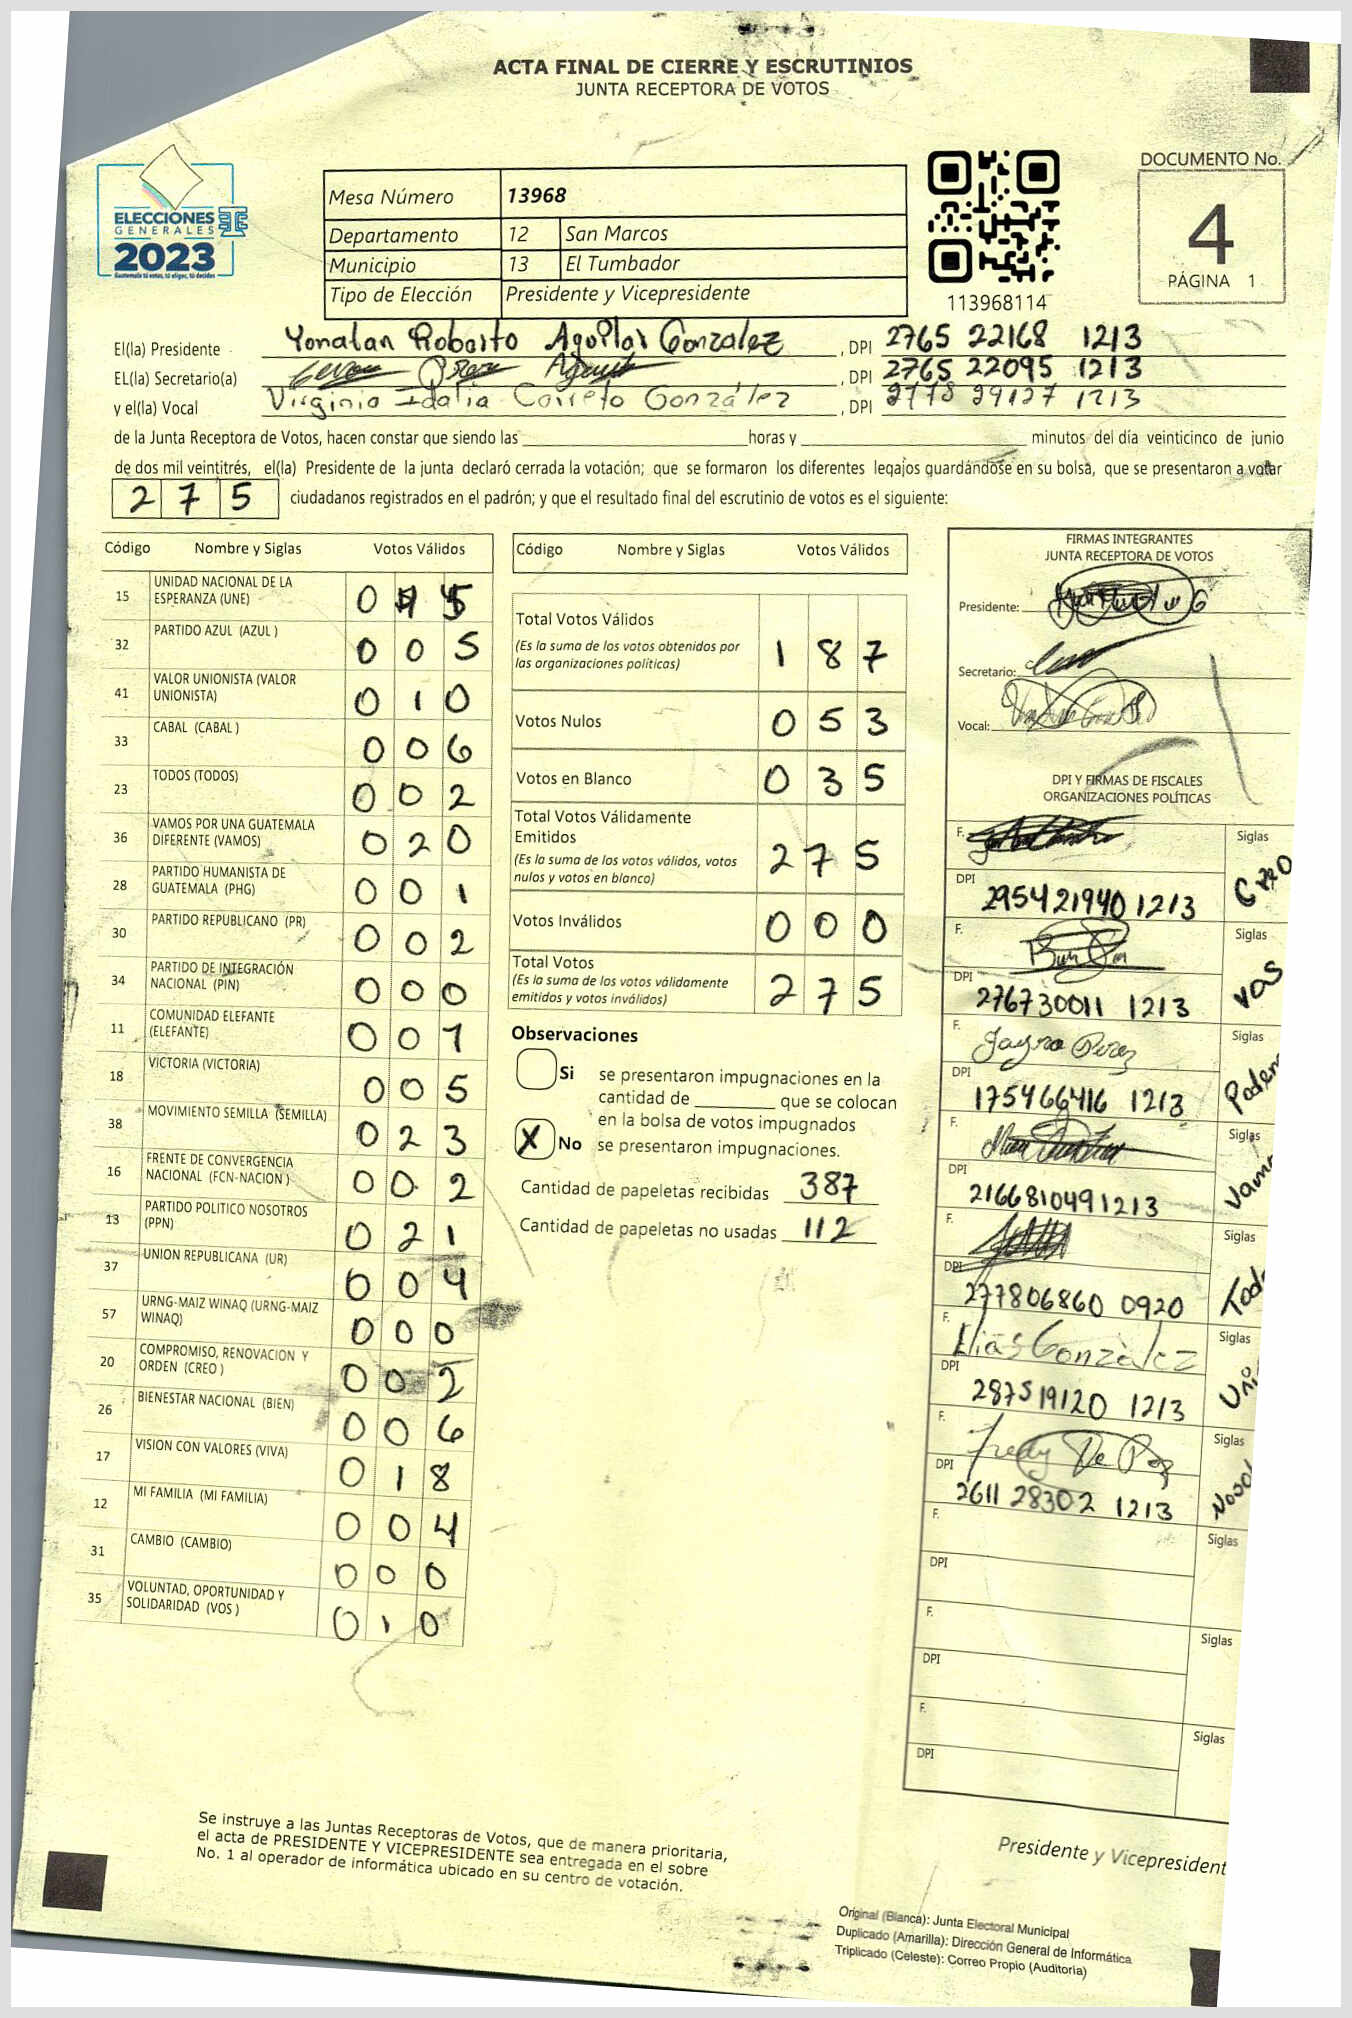 ACTA FINAL DE CIERRE Y ESCRUTINIOS
JUNTA RECEPTORA DE VOTOS
ELECCIONES
GENERALES
2023
Guatemala tú votas, tú eliges, tú decides
Mesa Número 13968
Departamento 12 San Marcos
Municipio 13 El Tumbador
Tipo de Elección Presidente y Vicepresidente
113968114
DOCUMENTO No.
4
PÁGINA 1
El(la) Presidente Yonatan Roberto Aguilar Gonzalez , DPI 2765 22168 1213
EL(la) Secretario(a) , DPI 2765 22095 1213
y el(la) Vocal Virginia Idalia Carreto González , DPI 2778 29127 1213
de la Junta Receptora de Votos, hacen constar que siendo las horas y minutos del día veinticinco de junio
de dos mil veintitrés, el(la) Presidente de la junta declaró cerrada la votación; que se formaron los diferentes legajos guardándose en su bolsa, que se presentaron a votar
275 ciudadanos registrados en el padrón; y que el resultado final del escrutinio de votos es el siguiente:
Código Nombre y Siglas Votos Válidos
15 UNIDAD NACIONAL DE LA ESPERANZA (UNE) 0 5
32 PARTIDO AZUL (AZUL ) 005
41 VALOR UNIONISTA (VALOR UNIONISTA) 010
33 CABAL (CABAL ) 006
23 TODOS (TODOS) 002
36 VAMOS POR UNA GUATEMALA DIFERENTE (VAMOS) 020
28 PARTIDO HUMANISTA DE GUATEMALA (PHG) 001
30 PARTIDO REPUBLICANO (PR) 002
34 PARTIDO DE INTEGRACIÓN NACIONAL (PIN) 000
11 COMUNIDAD ELEFANTE (ELEFANTE) 001
18 VICTORIA (VICTORIA) 005
38 MOVIMIENTO SEMILLA (SEMILLA) 023
16 FRENTE DE CONVERGENCIA NACIONAL (FCN-NACION ) 002
13 PARTIDO POLITICO NOSOTROS (PPN) 021
37 UNION REPUBLICANA (UR) 004
57 URNG-MAIZ WINAQ (URNG-MAIZ WINAQ) 000
20 COMPROMISO, RENOVACION Y ORDEN (CREO ) 002
26 BIENESTAR NACIONAL (BIEN) 006
17 VISION CON VALORES (VIVA) 018
12 MI FAMILIA (MI FAMILIA) 004
31 CAMBIO (CAMBIO) 000
35 VOLUNTAD, OPORTUNIDAD Y SOLIDARIDAD (VOS ) 010
Código Nombre y Siglas Votos Válidos
Total Votos Válidos 187
(Es la suma de los votos obtenidos por
las organizaciones políticas)
Votos Nulos 053
Votos en Blanco 035
Total Votos Válidamente
Emitidos 275
(Es la suma de los votos válidos, votos
nulos y votos en blanco)
Votos Inválidos 000
Total Votos 275
(Es la suma de los votos válidamente
emitidos y votos inválidos)
Observaciones
Si se presentaron impugnaciones en la
cantidad de que se colocan
en la bolsa de votos impugnados
X No se presentaron impugnaciones.
Cantidad de papeletas recibidas 387
Cantidad de papeletas no usadas 112
FIRMAS INTEGRANTES
JUNTA RECEPTORA DE VOTOS
Presidente:
Secretario:
Vocal:
DPI Y FIRMAS DE FISCALES
ORGANIZACIONES POLÍTICAS
F. Siglas
DPI 295421940 1213
F. Siglas VOS
DPI 276730011 1213
F. Jayro Perez Siglas Podem
DPI 175466416 1213
F. Siglas Vam
DPI 2166810491213
F. Siglas Tod
DPI 277806860 0920
F. Elias Gonzàlez Siglas Uni
DPI 287519120 1213
F. Fredy De Paz Siglas
DPI 2611 28302 1213
F. Siglas
DPI
F. Siglas
DPI
F. Siglas
DPI
Se instruye a las Juntas Receptoras de Votos, que de manera prioritaria,
el acta de PRESIDENTE Y VICEPRESIDENTE sea entregada en el sobre
No. 1 al operador de informática ubicado en su centro de votación.
Presidente y Vicepresident
Original (Blanca): Junta Electoral Municipal
Duplicado (Amarilla): Dirección General de Informática
Triplicado (Celeste): Correo Propio (Auditoria)